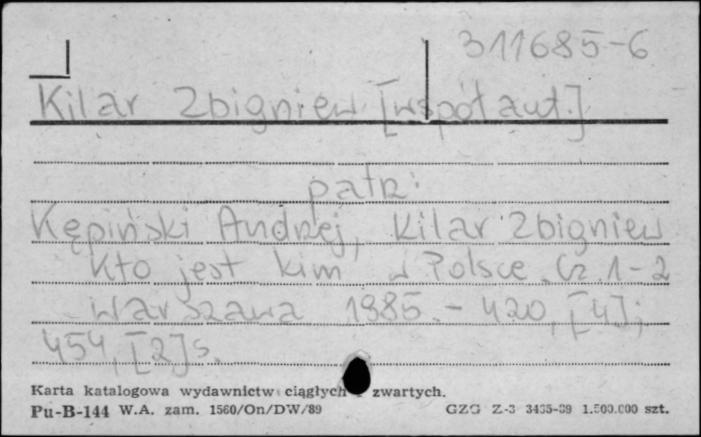 311685-6
Kilar Zbigniew [współaut.]
patrz:
Kępiński Andrzej, Kilar Zbigniew
Kto jest kim w Polsce. Cz. 1-2
Warszawa 1985. - 420, [4];
454, [2] s.
Karta katalogowa wydawnictw ciągłych i zwartych.
Pu-B-144 W.A. zam. 1560/On/DW/89 GZG Z-3 3435-89 1.500.000 szt.